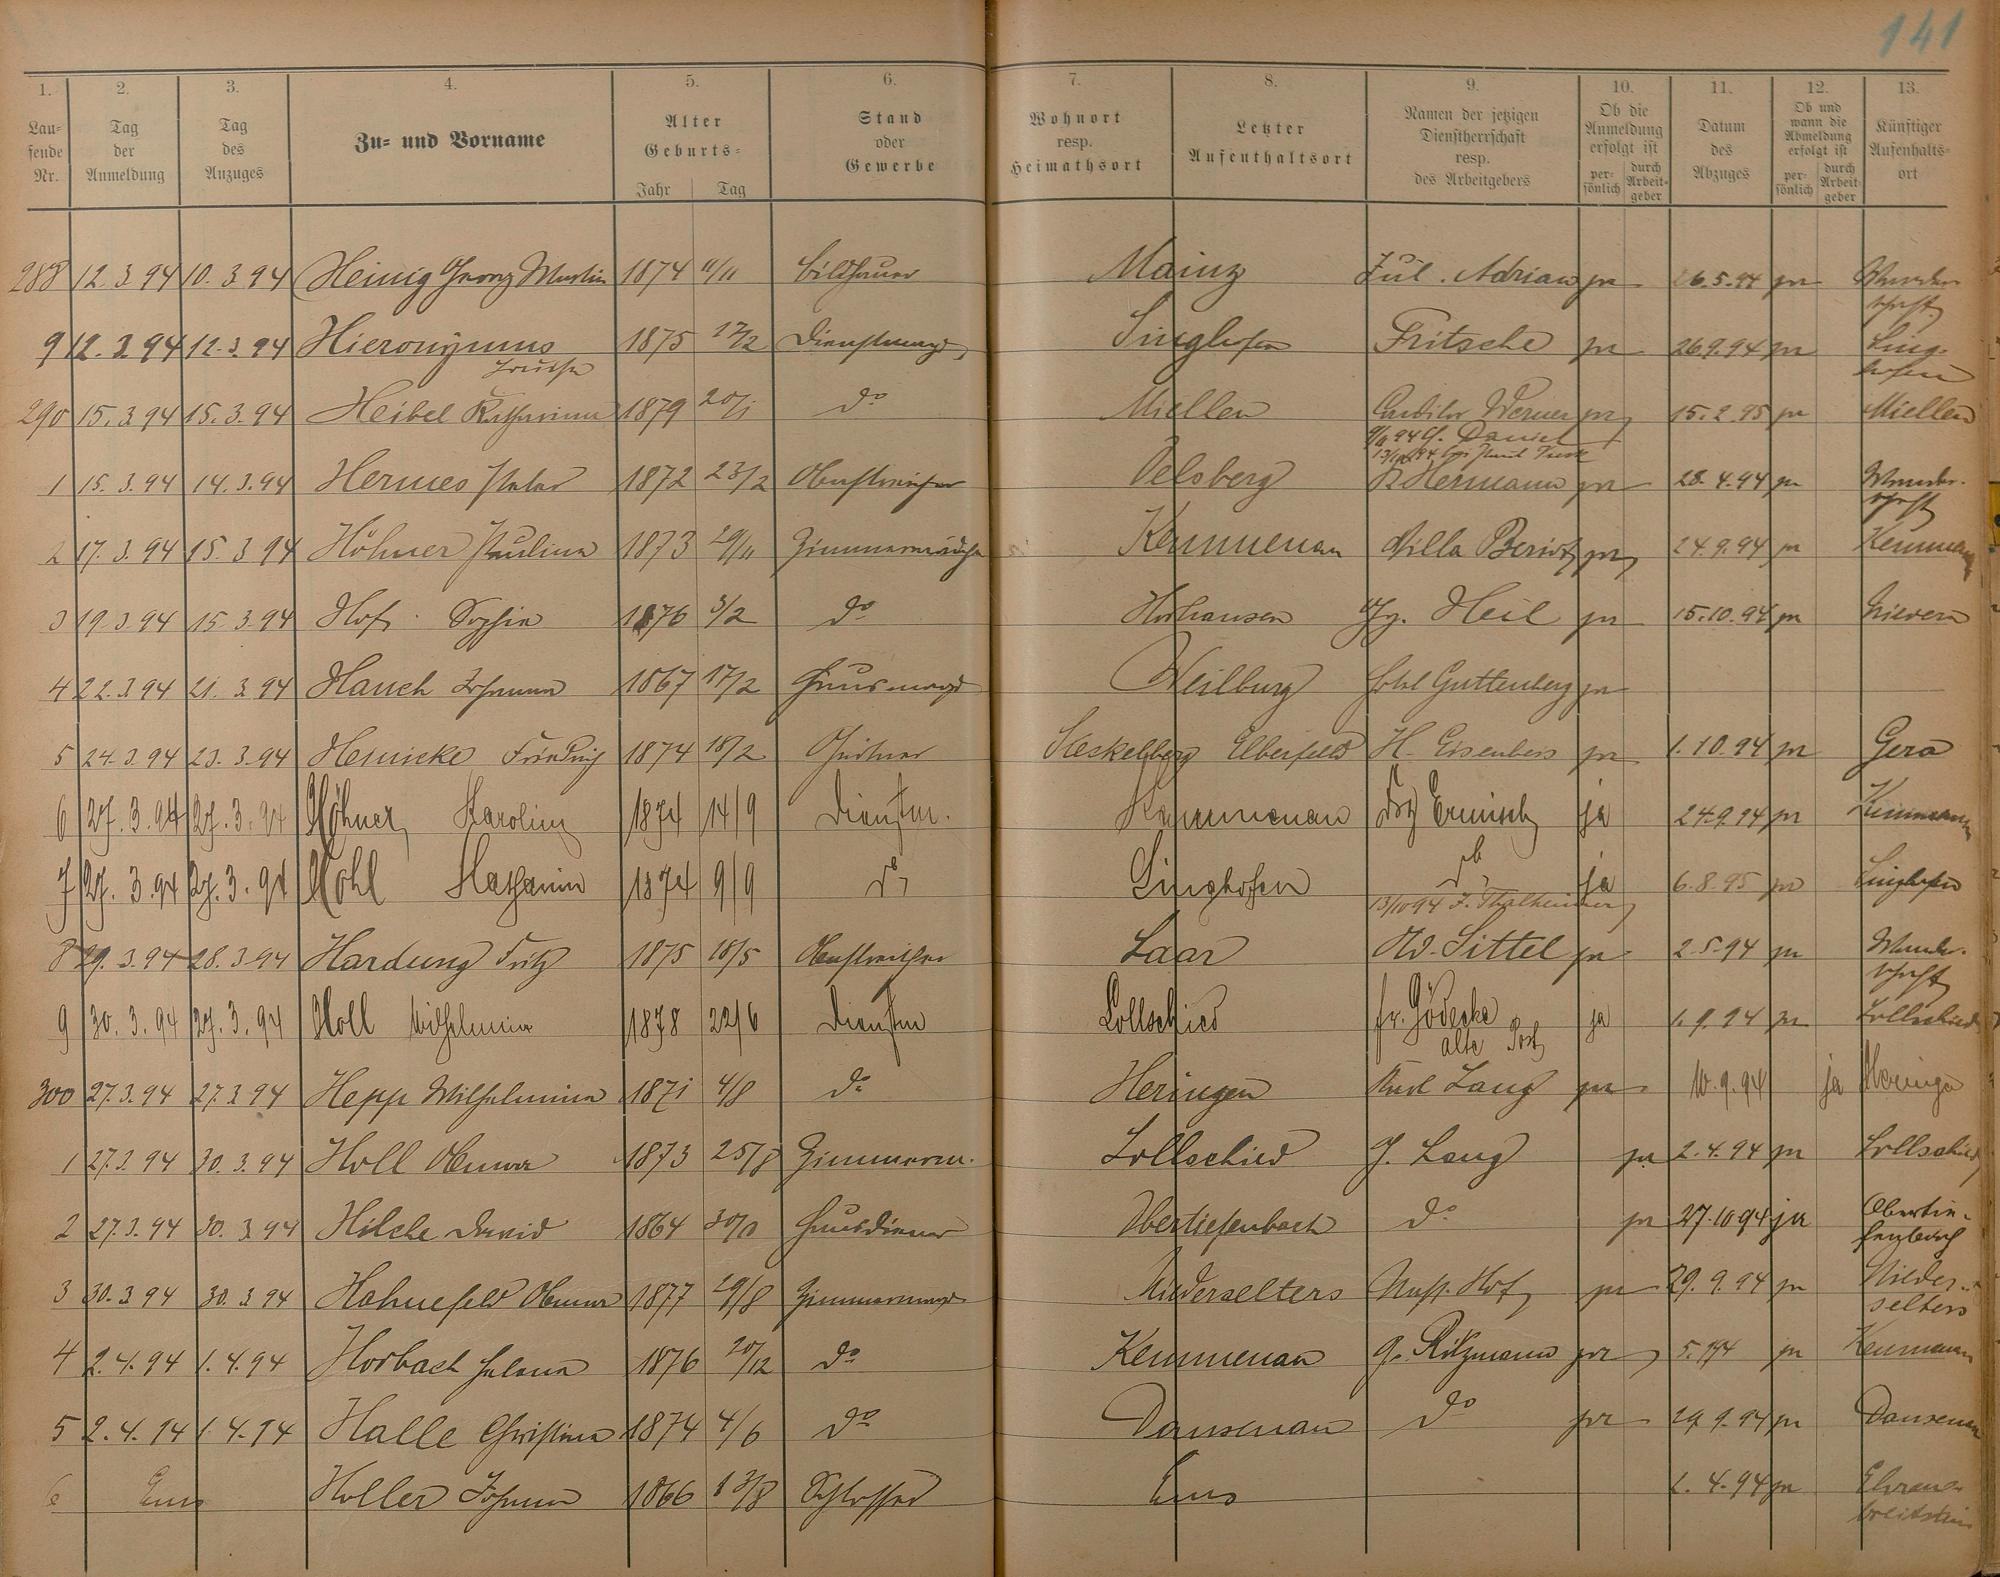 141
1. 2. 3. 4. 5. 6. 7. 8. 9. 10. 11. 12. 13.
Laufende Nr. Tag der Anmeldung Tag des Anzuges Zu- und Vorname Alter Geburts- Jahr Tag Stand oder Gewerbe Wohnort resp. Heimathsort Letzter Aufenthaltsort Namen der jetzigen Dienstherrschaft resp. des Arbeitgebers Ob die Anmeldung erfolgt ist persönlich durch Arbeitgeber Datum des Abzuges Ob und wann die Abmeldung erfolgt ist persönlich durch Arbeitgeber Künftiger Aufenhalts-ort
288 12.3.94 10.3.94 Heinig Georg Martin 1874 11/11 Bildhauer Mainz Jul. Adrian ja 26.5.94 ja Wander-
schaft
9 12.3.94 12.3.94 Hieronymus 1875 17/2 Dienstmagd Singhofen Fritsche ja 26.9.94 ja Sing-
Louise hofen
290 15.3.94 15.3.94 Heibel Katharina 1879 20/1 do Miellen Werner ja 15.2.95 ja Miellen
94 G. Daniel
1 15.3.94 14.3.94 Hermes Peter 1872 23/2 Anstreicher Oelsberg Hermann ja 28.4.94 ja Wander-
schaft
2 17.3.94 15.3.94 Höhner Paulina 1873 29/11 Zimmermädch Kemmenau Villa Beriot ja 24.9.94 ja Kemmenau
3 19.3.94 15.3.94 Hof Sophie 1876 3/2 do Horhausen Gg. Heil ja 15.10.94 ja Nievern
4 22.3.94 21.3.94 Hauch Johanna 1867 17/2 Hausmagd Weilburg Hotel Guttenberg ja
5 24.3.94 23.3.94 Heinicke Friedrich 1874 18/2 Gärtner Elberfeld H. Eisenbeis ja 1.10.94 ja Gera
6 27.3.94 27.3.94 Höhner Karolin 1874 14/9 Dienstm. Kemmenau Ermisch ja 24.9.94 ja Kemmenau
7 27.3.94 27.3.94 Hohl Katharina 1874 9/9 do Singhofen do ja 6.8.95 ja Singhofen
13/10 94 J. Thalheimer
8 29.3.94 28.3.94 Hardung Fritz 1875 18/5 Anstreicher Laar Ad. Sittel ja 2.5.94 ja Wander-
schaft
9 30.3.94 27.3.94 Holl Wilhelmine 1878 22/6 Dienstm Lollschied fr. Gödecke ja 1.9.94 ja Lollschied
alte Post
300 27.3.94 27.3.94 Hepp Wilhelmina 1871 4/8 do Heringen Karl Lang ja 10.9.94 ja Heringe
1 27.3.94 30.3.94 Holl Anna 1873 25/8 Zimmerm. Lollschied G. Lang ja 2.4.94 ja Lollschied
2 27.3.94 30.3.94 Hilche David 1864 Hausdiener Obertiefenbach do ja 27.10.94 ja Obertie-
fenbach
3 30.3.94 30.3.94 Hahnefeld Anna 1877 29/8 Zimmermagd Niederselters Nass. Hof ja 29.9.94 ja Nieder-
selters
4 2.4.94 1.4.94 Horbach Helena 1876 20/12 do Kemmenau G. Ritzmann ja ja Kemmenau
5 2.4.94 1.4.94 Halle Christina 1874 4/6 do Dausenau do ja 29.9.94 ja Dausenau
6 Ems Holler Johann 1866 13/8 Schlosser Ems 1.4.94 ja Ehren-
breitstein